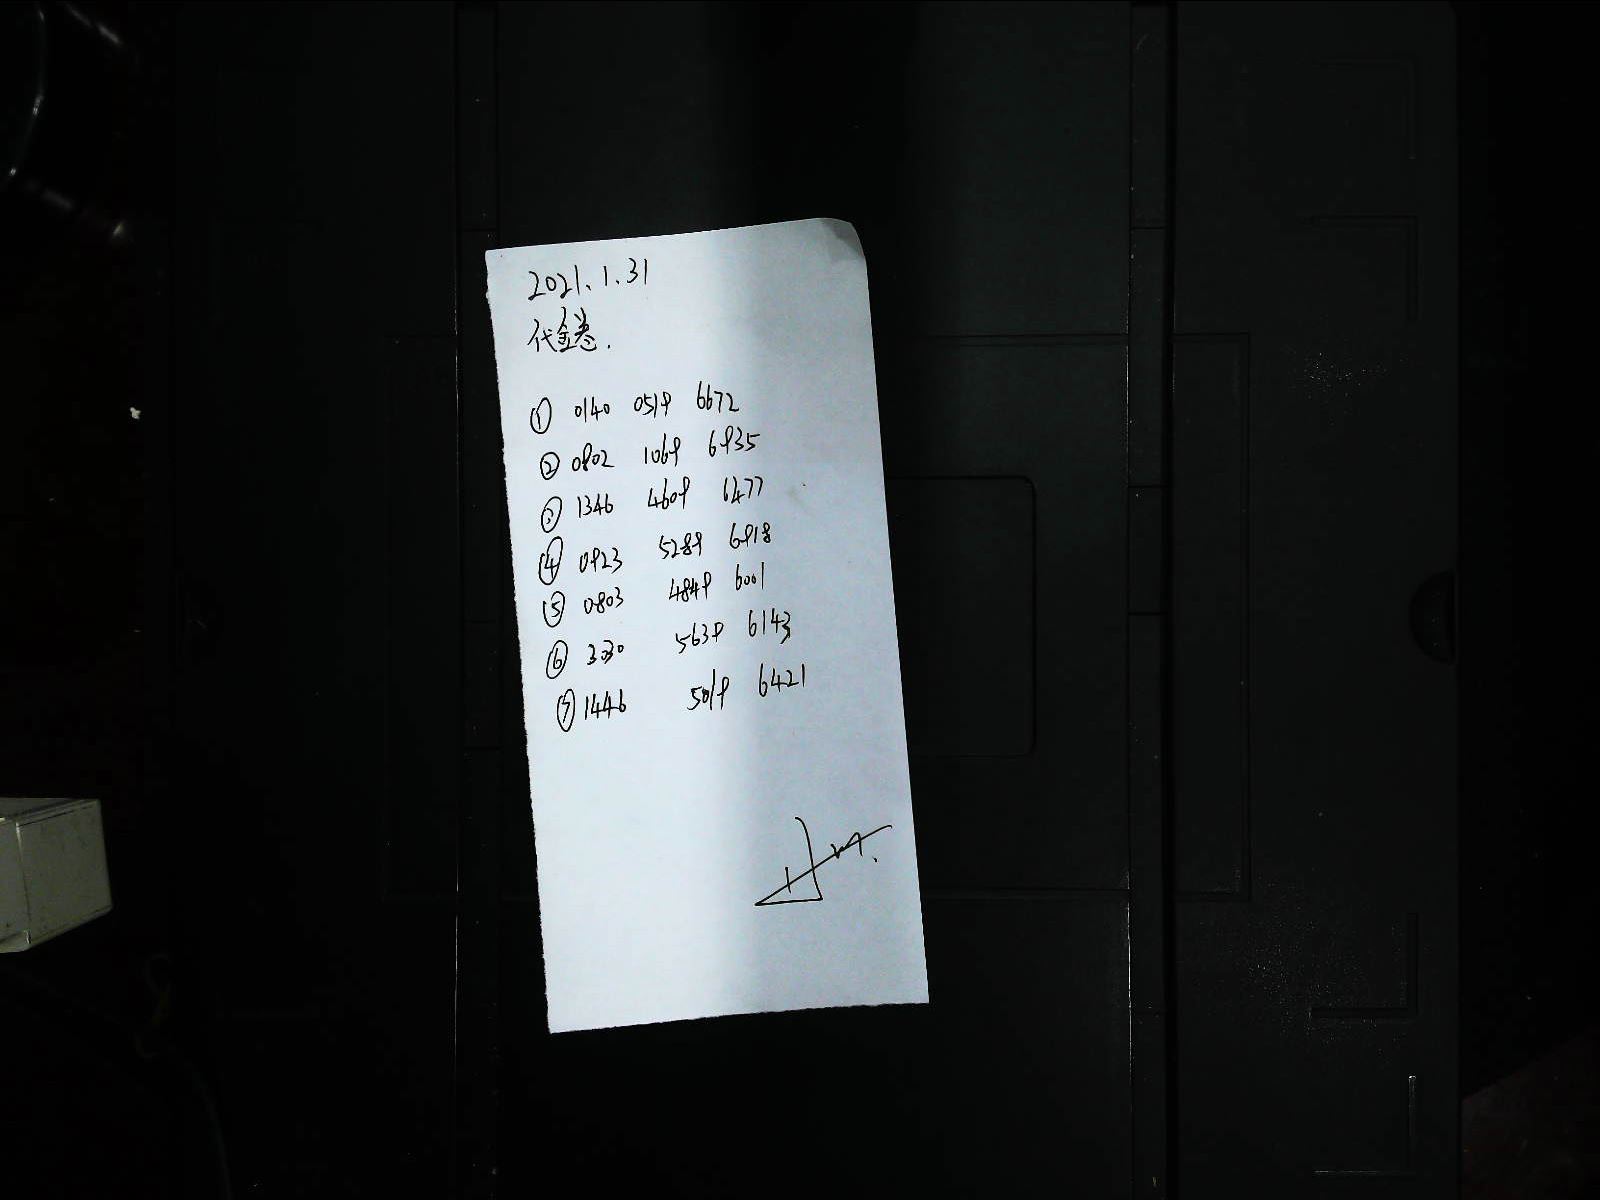 2021.1.31
代金卷.
① 0140 0519 6672
② 0802 1069 6935
③ 1346 4609 6477
④ 0923 5289 6918
⑤ 0803 4849 6001
⑥ 3030 5639 6143
⑦ 1446 5019 6421